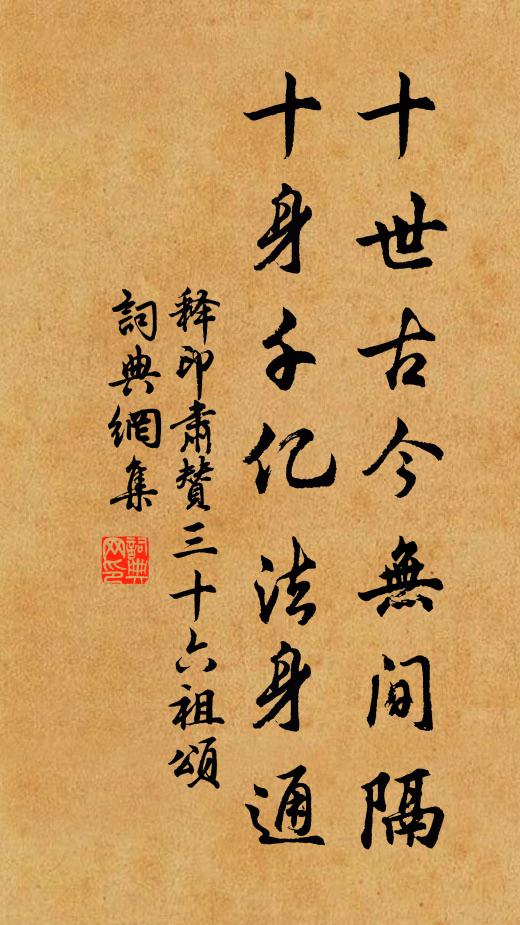 十世古今無间隔
十身千亿法身通
释印肃赞三十六祖頌
詞典網集
詞典网印